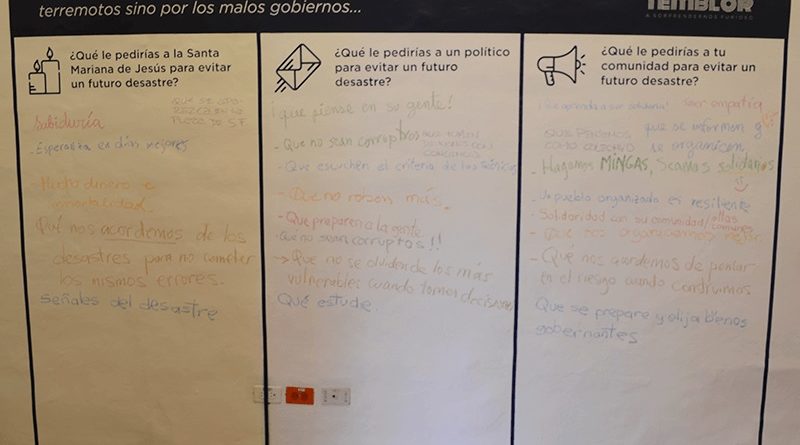 terremotos sino por los malos gobiernos...
TEMBLOR
A SORPRENDERNOS FURIOSO
¿Qué le pedirías a la Santa
Mariana de Jesús para evitar
un futuro desastre?
Sabiduría
- Esperanza en días mejores
- Mucho dinero e
inmortalidad.
Qué nos acordemos de los
desastres para no cometer
los mismos errores.
Señales del desastre
¿Qué le pedirías a un político
para evitar un futuro
desastre?
¡que piense en su gente!
- Que no sean corruptos
- Que escuchen el criterio de los técnicos
- Que no roben más.
- Que preparen a la gente.
Que no sean corruptos!!
→ Que no se olviden de los más
vulnerables cuando tomen decisiones
Qué estudie.
¿Qué le pedirías a tu
comunidad para evitar un
futuro desastre?
¡Que aprenda a ser solidaria!
Ser empática
que se informen y
se organicen.
- Hagamos MINGAS, Seamos solidarios
- Un pueblo organizado es resiliente
- Solidaridad con su comunidad/
- Que nos organicemos mejor.
- Qué nos acordemos de pensar
en el riesgo cuando construimos.
Que se prepare y elija buenos
gobernantes